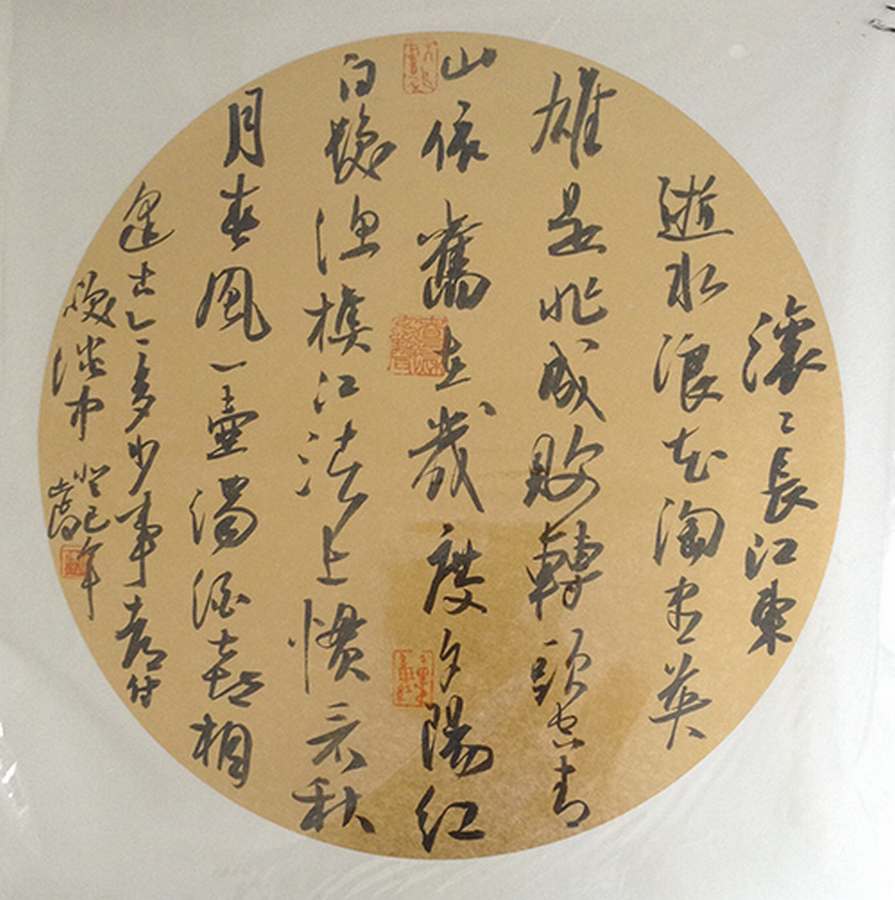 滾〻長江東
逝水浪花淘盡英
雄是非成敗轉頭空青
山依舊在幾度夕陽紅
白髮漁樵江渚上慣看秋
月春風一壺濁酒喜相
逢古今多少事都付
笑談中 癸巳年